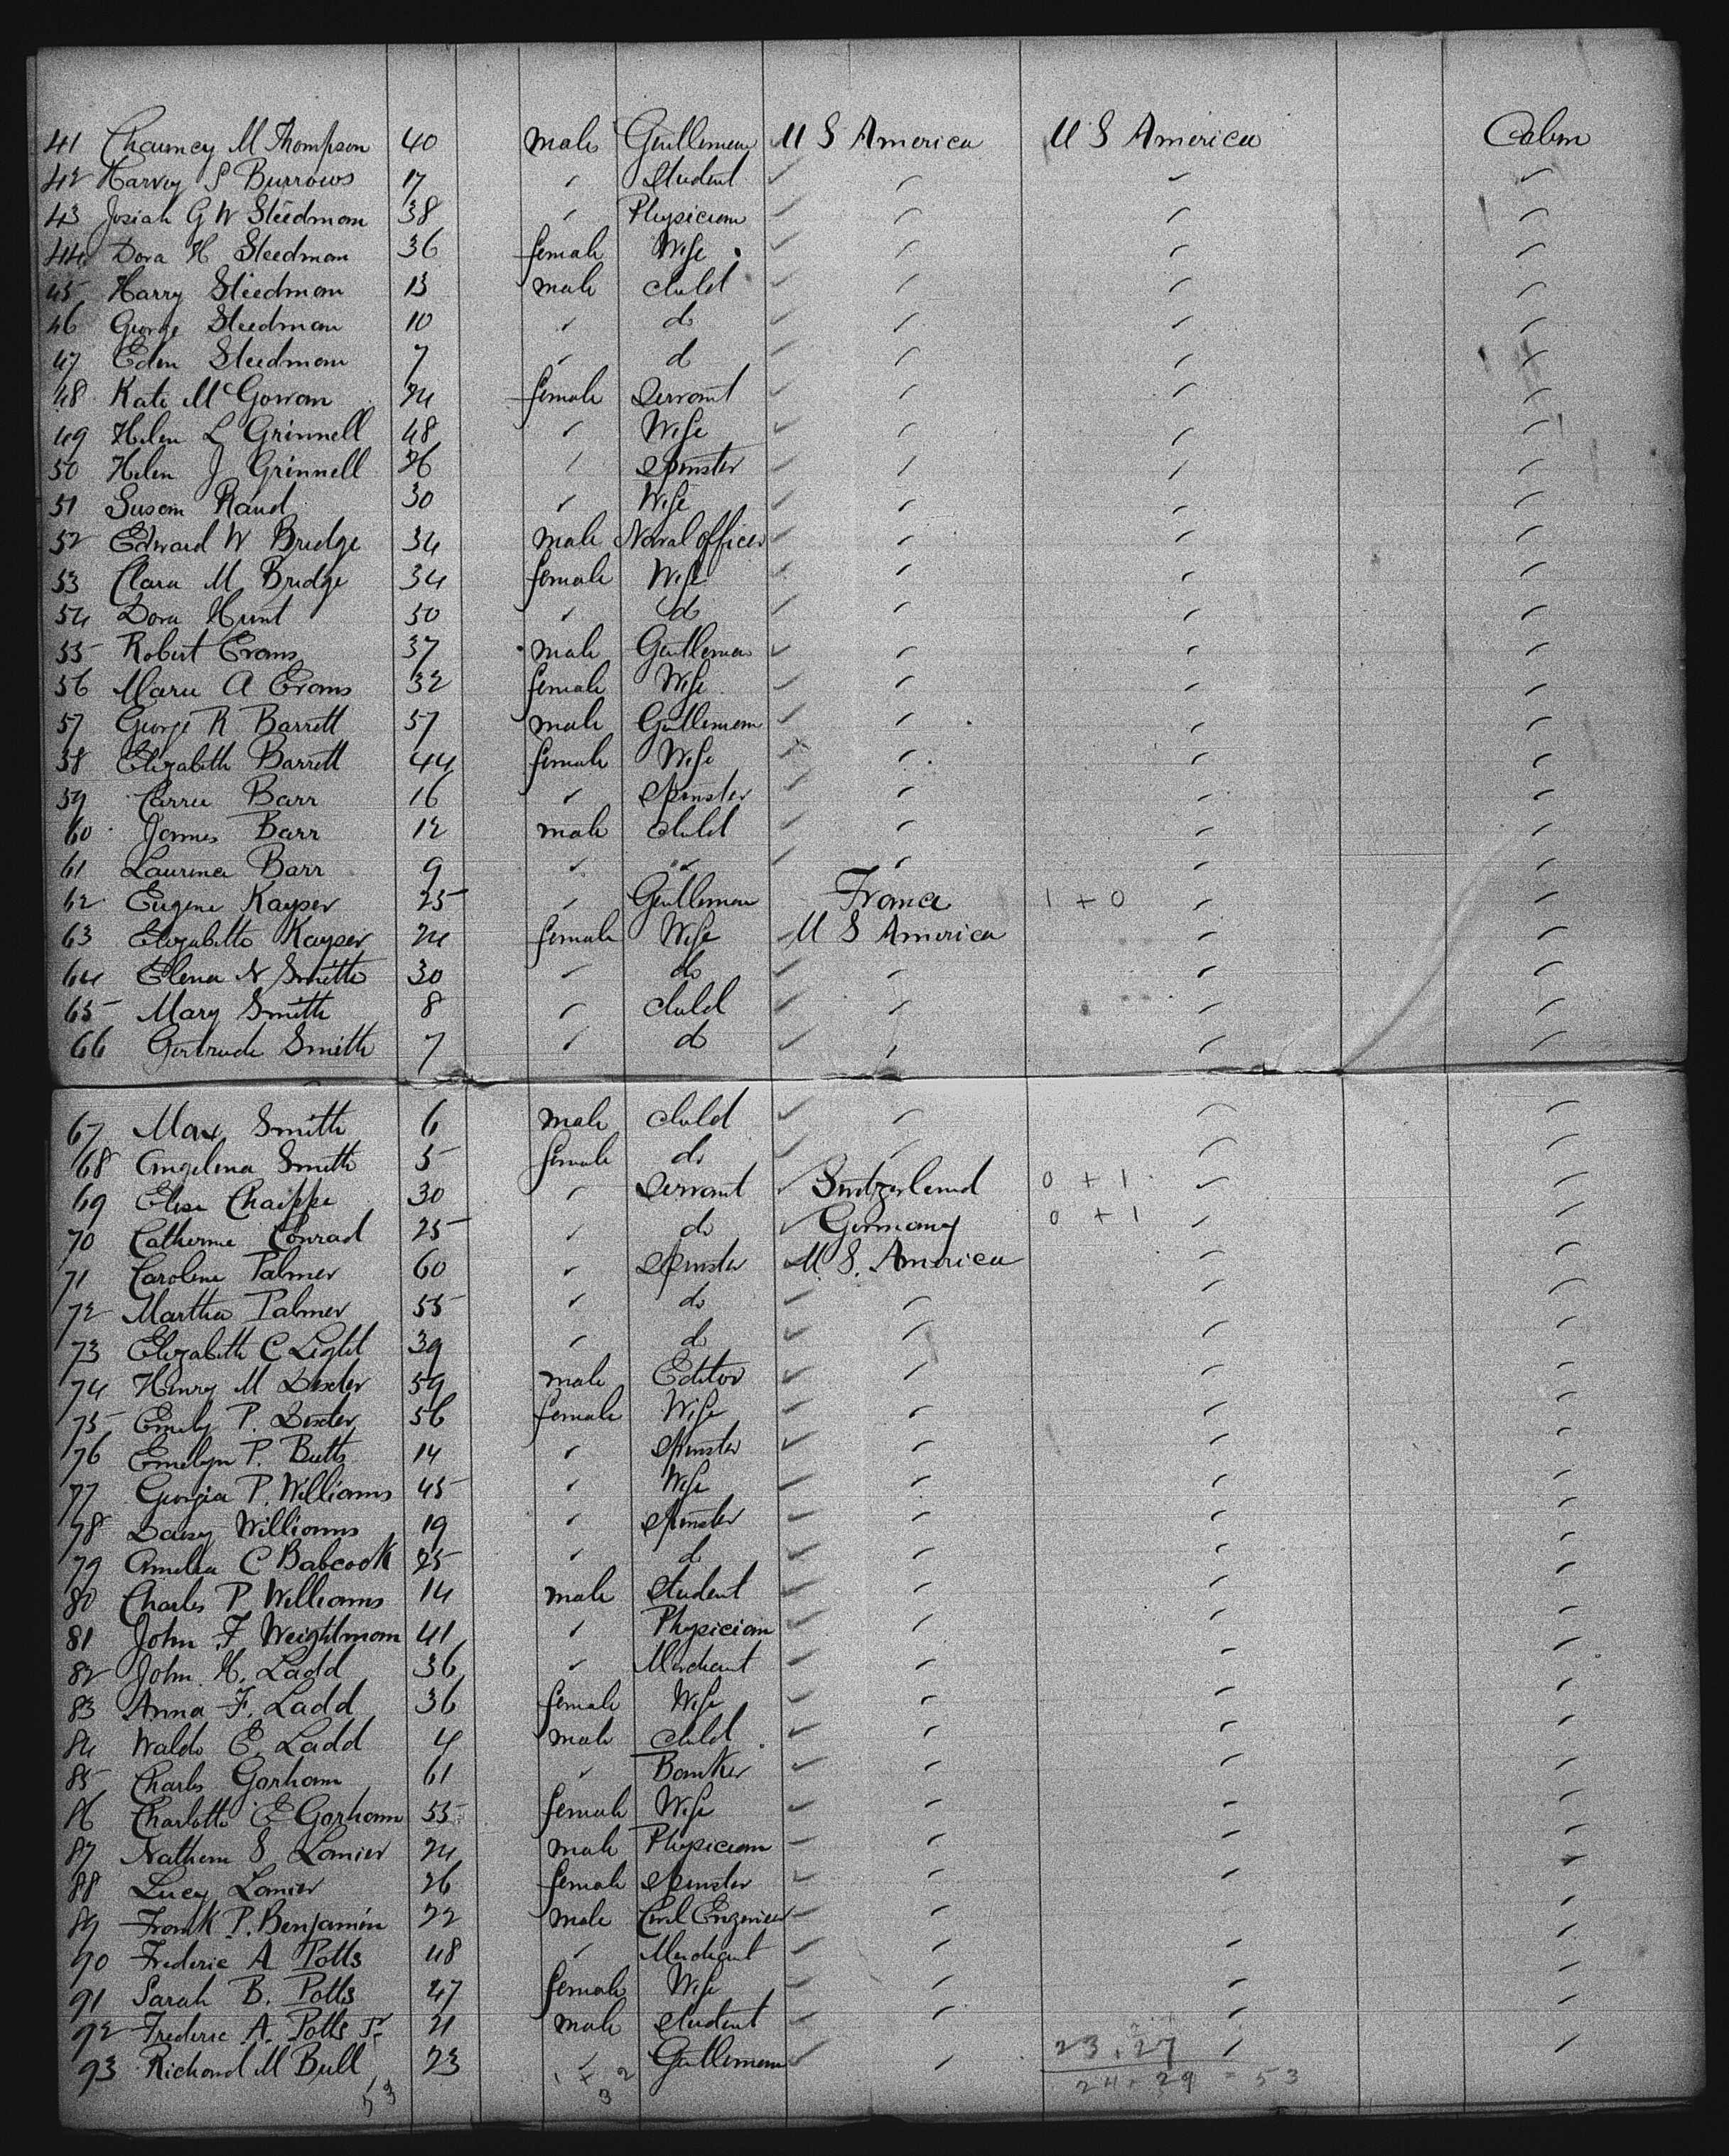 41 Chauncey M Thompson 40 male Gentleman U S America U S America Cabin
42 Harvey S Burrows 17 " Student " " "
43 Josiah G W Steedman 38 " Physician " " "
44 Dora H Steedman 36 female Wife " " "
45 Harry Steedman 13 male child " " "
46 George Steedman 10 " do " " "
47 Eden Steedman 7 " do " " "
48 Kate McGowan 24 female Servant " " "
49 Helen L Grinnell 48 " Wife " " "
50 Helen J Grinnell 26 " Spinster " " "
51 Susan Rand 30 " Wife " " "
52 Edward W Bridge 34 male Naval officer " " "
53 Clara M Bridge 34 female Wife " " "
54 Dora Hunt 50 " do " " "
55 Robert Evans 37 male Gentleman " " "
56 Marie A Evans 32 female Wife " " "
57 George R Barrett 57 male Gentleman " " "
58 Elizabeth Barrett 44 female Wife " " "
59 Carrie Barr 16 " Spinster " " "
60 James Barr 12 male child " " "
61 Laurence Barr 9 " " " " "
62 Eugene Kayser 25 " Gentleman France 1 + 0 " "
63 Elizabeth Kayser 24 female Wife U S America " "
64 Elena N Smith 30 " do " " "
65 Mary Smith 8 " child " " "
66 Gertrude Smith 7 " do " " "
67 Max Smith 6 male child " " "
68 Angelena Smith 5 female do " " "
69 Elise 30 " Servant Switzerland 0 + 1 " "
70 Catherine Conrad 25 " do Germany 0 + 1 " "
71 Caroline Palmer 60 " Spinster U. S. America " "
72 Martha Palmer 55 " do " " "
73 Elizabeth C Light 39 " do " " "
74 Henry M Dexter 59 male Editor " " "
75 Emily P. Dexter 56 female Wife " " "
76 Emelyn P. Butts 14 " Spinster " " "
77 Georgia P. Williams 45 " Wife " " "
78 Daisy Williams 19 " Spinster " " "
79 Amelia C Babcock 25 " do " " "
80 Charles P. Williams 14 male Student " " "
81 John F Weightman 41 " Physician " " "
82 John H. Ladd 36 " Merchant " " "
83 Anna F. Ladd 36 female Wife " " "
84 Waldo E. Ladd 4 male child " " "
85 Charles Gorham 61 " Banker " " "
86 Charlotte E Gorham 55 female Wife " " "
87 Nathan S Lanier 24 male Physician " " "
88 Lucy Lanier 26 female Spinster " " "
89 Frank P. Benjamin 22 male Civil Engineer " "
90 Frederic A Potts 48 " Merchant " " "
91 Sarah B. Potts 47 female Wife " " "
92 Frederic A. Potts Jr 21 male Student " " "
93 Richard M Bull 23 " Gentleman " 23 . 27 " "
53 1 + 2 24 . 29 = 53
3